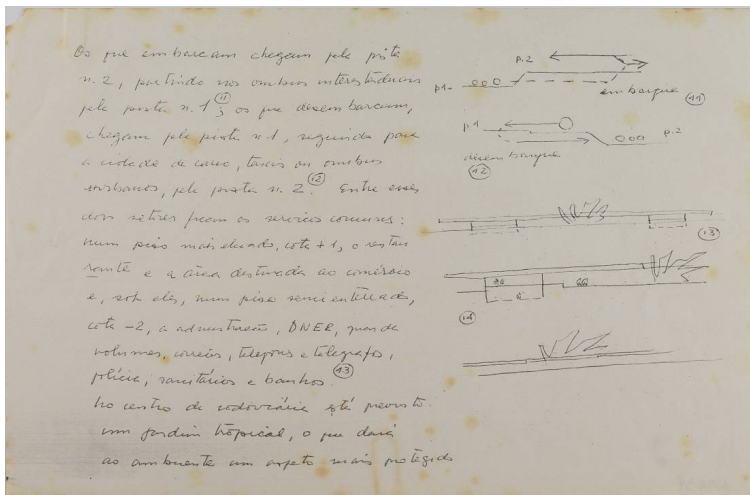 Os que embarcam chegam pela pista
n. 2, partindo nos onibus interestaduais
pela pista n. 1 (11); os que desembarcam,
chegam pela pista n. 1, seguindo para
a cidade de carro, taxis ou onibus
urbanos, pela pista n. 2. (12) Entre esses
dois setores ficam os serviços comuns:
num piso mais elevado, cota +1, o restau
rante e a área destinada ao comércio
e, sob eles, num piso semi enterrado,
cota -2, a administração, DNER, guarda
volumes, correios, telefones e telegrafos,
policia, sanitários e banhos. (13)
No centro da rodoviária está previsto
um jardim tropical, o que dará
ao ambiente um aspeto mais protegido
p.2
p1-
embarque
11
p.1
p.2
desembarque
12
13
14